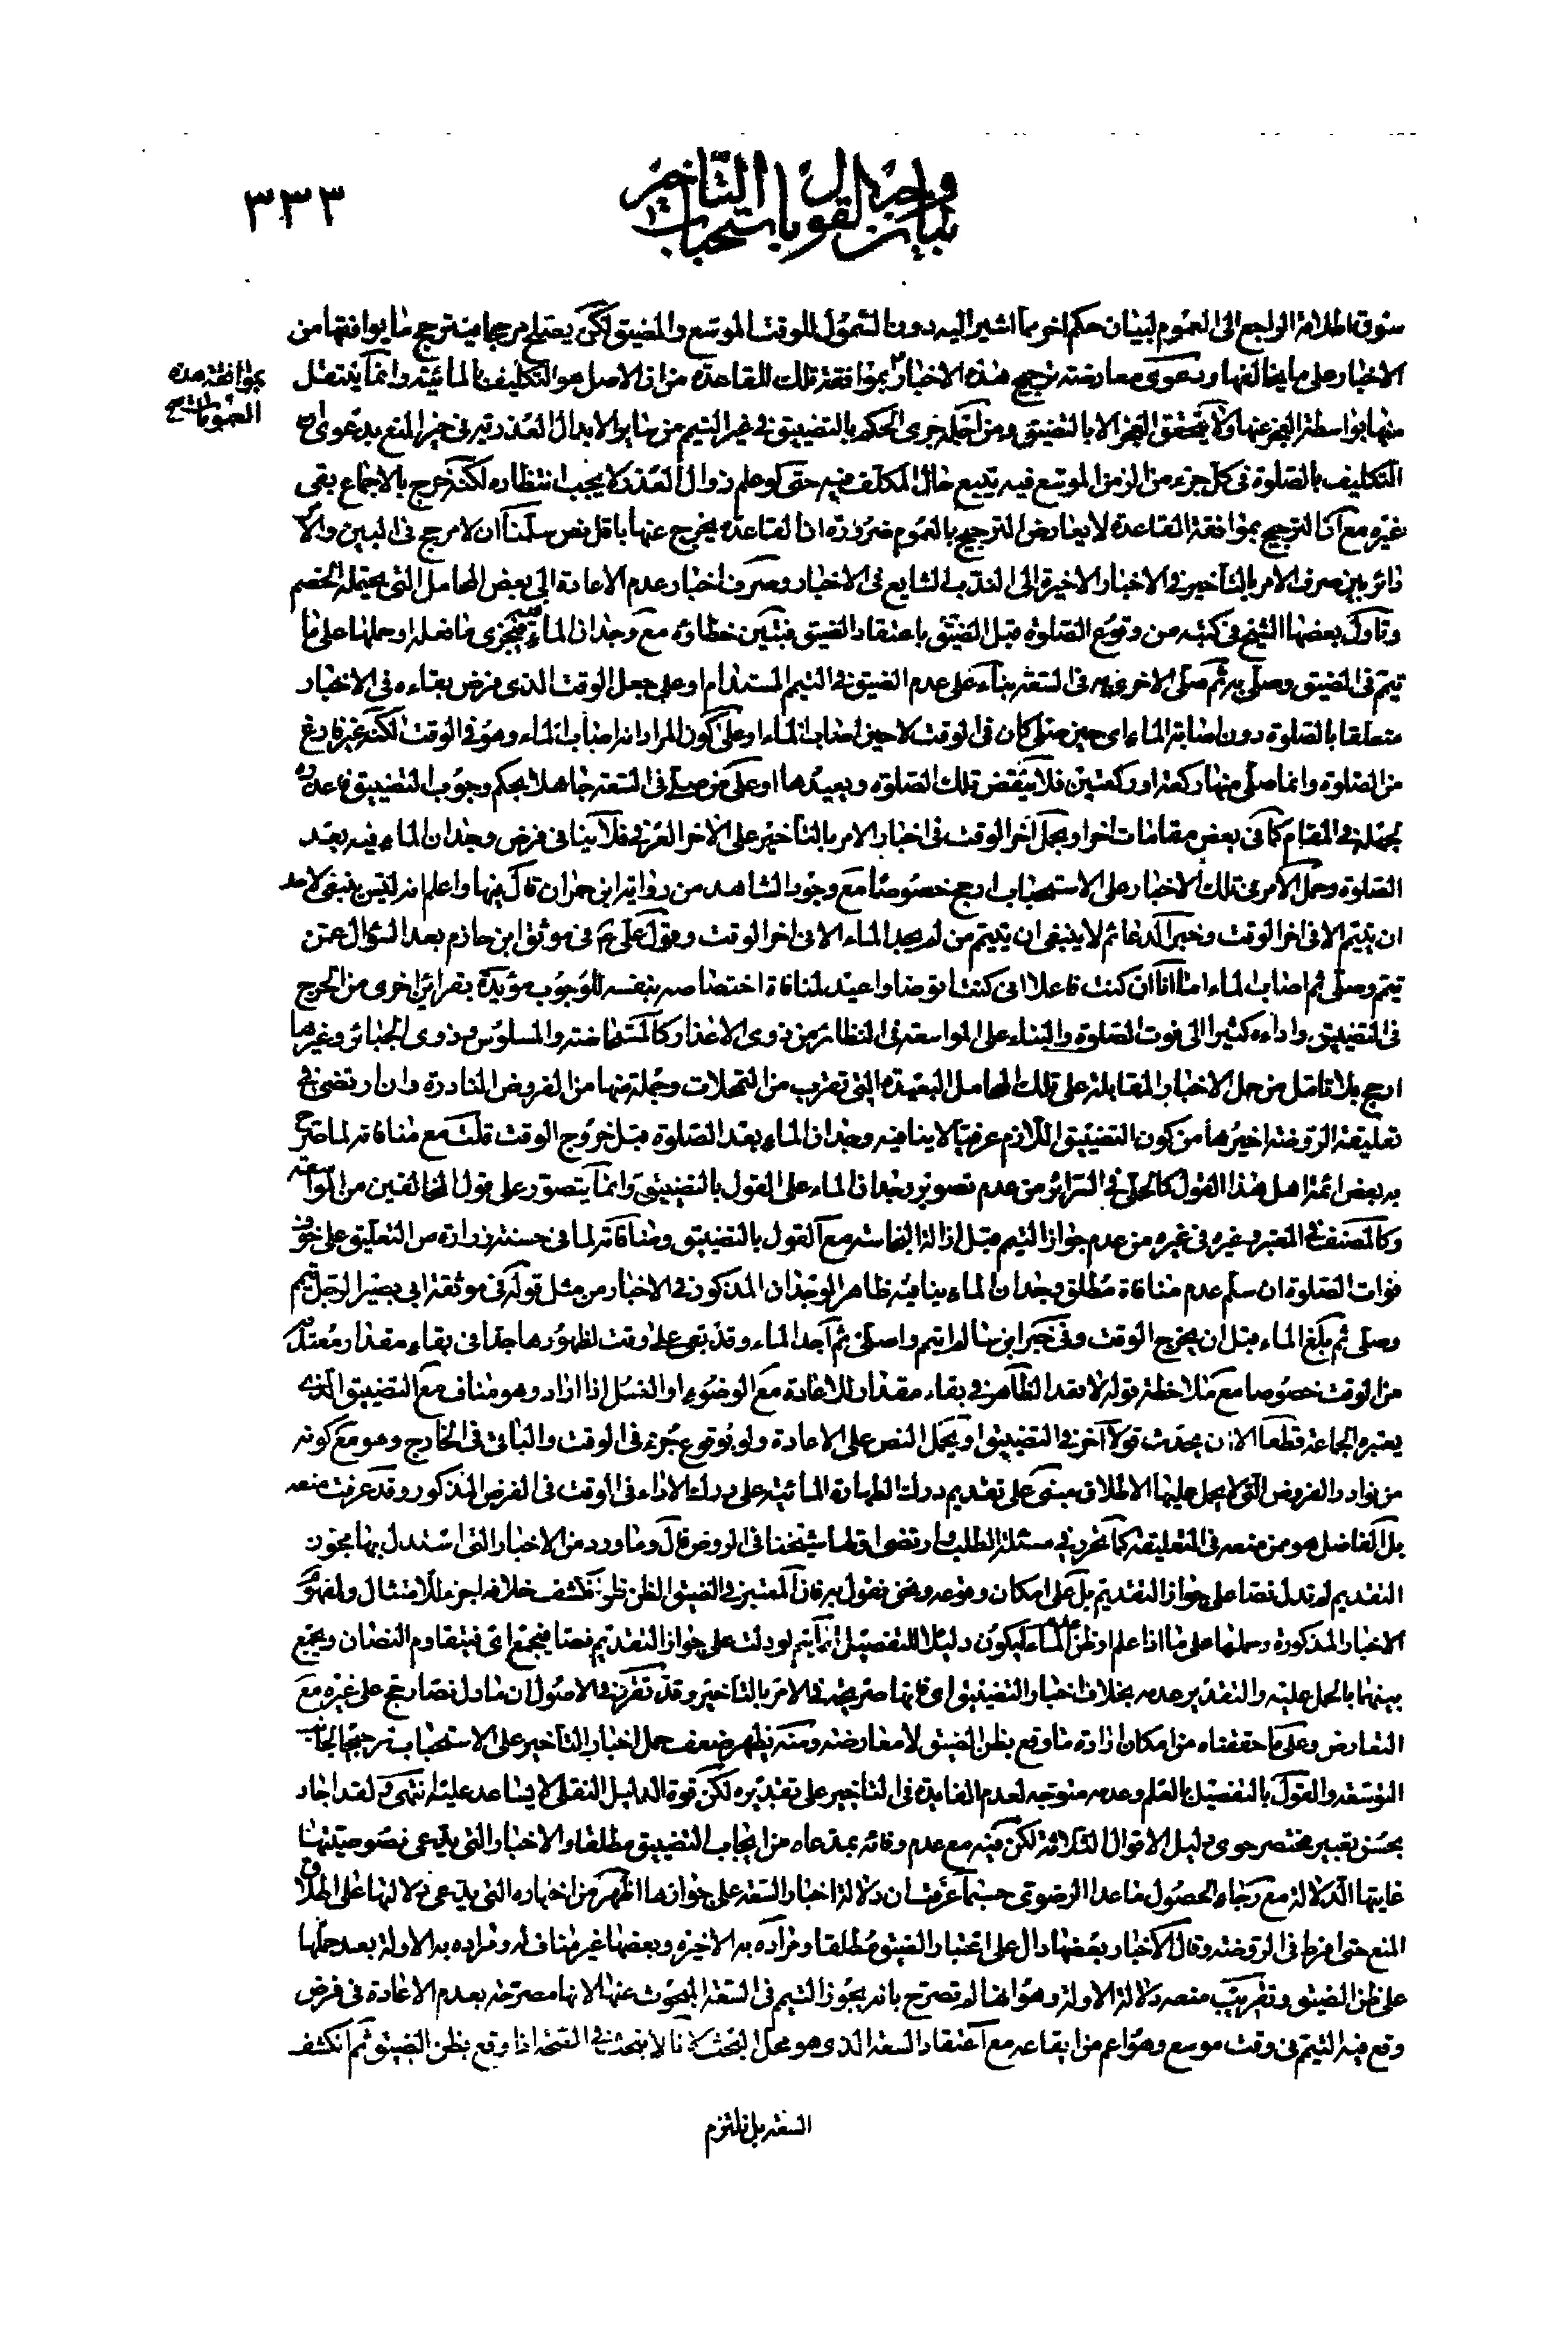 ٣٣٣
بيان وجه القول باستحباب التأخير
سوق اطلاقه الراجع الى العموم لبيان حكم اخر مما اشير اليه دون الشمول للوقت الموسع والمضيق لكن يصلح مرجحا فيترجح ما يوافقها من
الاخبار على ما يخالفها ودعوى معارضته ترجيح هذه الاخبار بموافقة تلك القاعدة من ان الاصل هو التكليف بالمائية وانما ينتقل
بموافقة هذه العمومات
منها بواسطة العجز عنها ولا يتحقق العجز الا بالتضيق ومن اجله جرى الحكم بالتضييق في غير التيمم من سائر الابدال العذرية في حيز المنع بدعوى ان
التكليف بالصلوة في كل جزء من الزمن الموسع فيه يتبع حال المكلف فيه حتى لو علم زوال العذر لا يجب انتظاره لكنه خرج بالاجماع بقى
غيره مع ان الترجيح بموافقة القاعدة لا يعارض الترجيح بالعموم ضرورة ان القاعدة يخرج عنها باقل نص سلمنا ان لا مرجح في البين والامر
دائر بين صرف الامر بالتأخير في الاخبار الاخيرة الى الندب الشايع في الاخبار وصرف اخبار عدم الاعادة الى بعض المحامل التي يحتمله الخصم
وتأول بعضها الشيخ في كتبه من وقوع الصلوة قبل الضيق باعتقاد الضيق فتبين خطاؤه مع وجدان الماء فيجزى ما فعله او حملها على ما
تيمم في الضيق وصلى به ثم صلى الاخرى به في السعة بناء على عدم الضيق في التيمم المستدام او على جعل الوقت الذى فرض بقاءه في الاخبار
متعلقا بالصلوة دون اصابة الماء اى حين صلى كان في الوقت لا حين اصاب الماء او على كون المراد انه اصاب الماء وهو في الوقت لكنه غير فارغ
من الصلوة وانما صلى منها ركعة او ركعتين فلا ينقض تلك الصلوة ويعيدها او على من صلى في السعة جاهلا بحكم وجوب التضييق
لجهله في المقام كما في بعض مقامات اخر او بحمل اخر الوقت في اخبار الامر بالتأخير على الاخر العرفى فلا ينافى فرض وجدان الماء فيه بعد
الصلوة وحمل الامر في تلك الاخبار على الاستحباب ارجح خصوصا مع وجود الشاهد من رواية ابن حمران قال فيها واعلم انه ليس ينبغى لاحد
ان يتيمم الا في اخر الوقت وخبر الدعائم لا ينبغى ان يتيمم من لم يجد الماء الا في اخر الوقت وقول على في موثق ابن حازم بعد السؤال عمن
تيمم وصلى ثم اصاب الماء اما انا ان كنت فاعلا انى كنت اتوضا واعيد لمنافاة اختصاصه بنفسه للوجوب مؤيدة بقرائن اخرى من الحرج
في التضييق واداءه كثيرا الى فوت الصلوة والبناء على المواسعة في النظائر من ذوى الاعذار كالمستحاضة والمسلوس وذوى الجبائر وغيرها
ارجح بلا تامل من حمل الاخبار المقابلة على تلك المحامل البعيدة التي تقرب من التمحلات وجملة منها من الفروض النادرة وان ارتضى في
تعليقة الروضة اخيرها من كون التضييق اللازم عرفيا لا ينافيه وجدان الماء بعد الصلوة قبل خروج الوقت قلت مع منافاته لما صرح
به بعض ائمة اهل هذا القول كالحلى في السرائر من عدم تصوير وجدان الماء على القول بالتضييق وانما يتصور على قول المخالفين من المواسعة
وكالمصنف في المعتبر وغيره في غيره من عدم جواز التيمم قبل ازالة النجاسة مع القول بالتضييق ومنافاته لما في حسنة زرارة من التعليق على خوف
فوات الصلوة ان سلم عدم منافاة مطلق وجدان الماء ينافيه ظاهر الوجدان المذكور في الاخبار من مثل قوله في موثقة ابى بصير الرجل تيمم
وصلى ثم بلغ الماء قبل ان يخرج الوقت وفي خبر ابن سالم اتيمم واصلى ثم اجد الماء وقد بقى على وقت لظهورها جدا في بقاء مقدار معتد به
من الوقت خصوصا مع ملاحظة قوله لا يعد الظاهر في بقاء مقدار للاعادة مع الوضوء او الغسل اذا اراد وهو مناف مع التضييق الذى
يعتبره الجماعة قطعا الا ان يحدث قولا آخر في التضييق او يحمل النص على الاعادة ولو بوقوع جزء في الوقت والباقى في الخارج وهو مع كونه
من نوادر الفروض التى لا يحمل عليها الاطلاق مبنى على تقديم درك الطهارة المائية على درك الاداء في الوقت في الفرض المذكور وقد عرفت منعه
بل الفاضل هو ممن منعه في التعليقة كما تحرر في مسئلة الطلب وارتضى اولها شيخنا في الروض قال وما ورد من الاخبار التي استدل بها مجوزو
التقديم لم تدل نصا على جواز التقديم بل على امكان وقوعه ونحن نقول به فان المعتبر في الضيق الظن فلو انكشف خلافه اجزء للامتثال ولمفهوم
الاخبار المذكورة وحملها على ما اذا علم او ظن الماء ليكون دليلا للتفصيل انما يتم لو دلت على جواز التقديم نصا فيتقاوم النصان ويجمع
بينهما بالحمل عليه والتقدير عدمه بخلاف اخبار التضييق اى فانها صريحة في الامر بالتأخير وقد تقرر في الاصول ان ما دل نصا رجح على غيره مع
التعارض وعلى ما حققناه من امكان ارادة ما وقع بظن الضيق لا معارضة ومنه يظهر ضعف حمل اخبار التأخير على الاستحباب ترجيحا لجانب
التوسعة والقول بالتفصيل بالعلم وعدمه متوجه لعدم الفايدة في التاخير على تقديره لكن قوة الدليل النقلى لا يساعد عليه انتهى ولقد اجاد
بحسن تعبير مختصر حوى دليل الاقوال الثلاثة لكن فيه مع عدم وفائه بمدعاه من ايجاب التضييق مطلقا والاخبار التي يدعى نصوصيتها
غايتها الدلالة مع رجاء الحصول ما عدا الرضوى حسبما عرفت ان دلالة اخبار السعة على جوازها اظهر من اخباره التي يدعى دلالتها على اطلاق
المنع حتى افرط في الروضة وقال الاخبار بعضها دال على اعتبار الضيق مطلقا ومراده به الاخيرة وبعضها غير مناف له ومراده به الاولة بعد حملها
على ظن الضيق وتقريب منعه دلالة الاولة وهو انها لم تصرح بانه يجوز التيمم في السعة المبحوث عنها لانها مصرحة بعدم الاعادة في فرض
وقع فيه التيمم في وقت موسع وهو اعم من ايقاعه مع اعتقاد السعة الذى هو محل البحث لانا لا نبحث في الصحة اذا وقع بظن الضيق ثم انكشف
السعة بل نلتزم